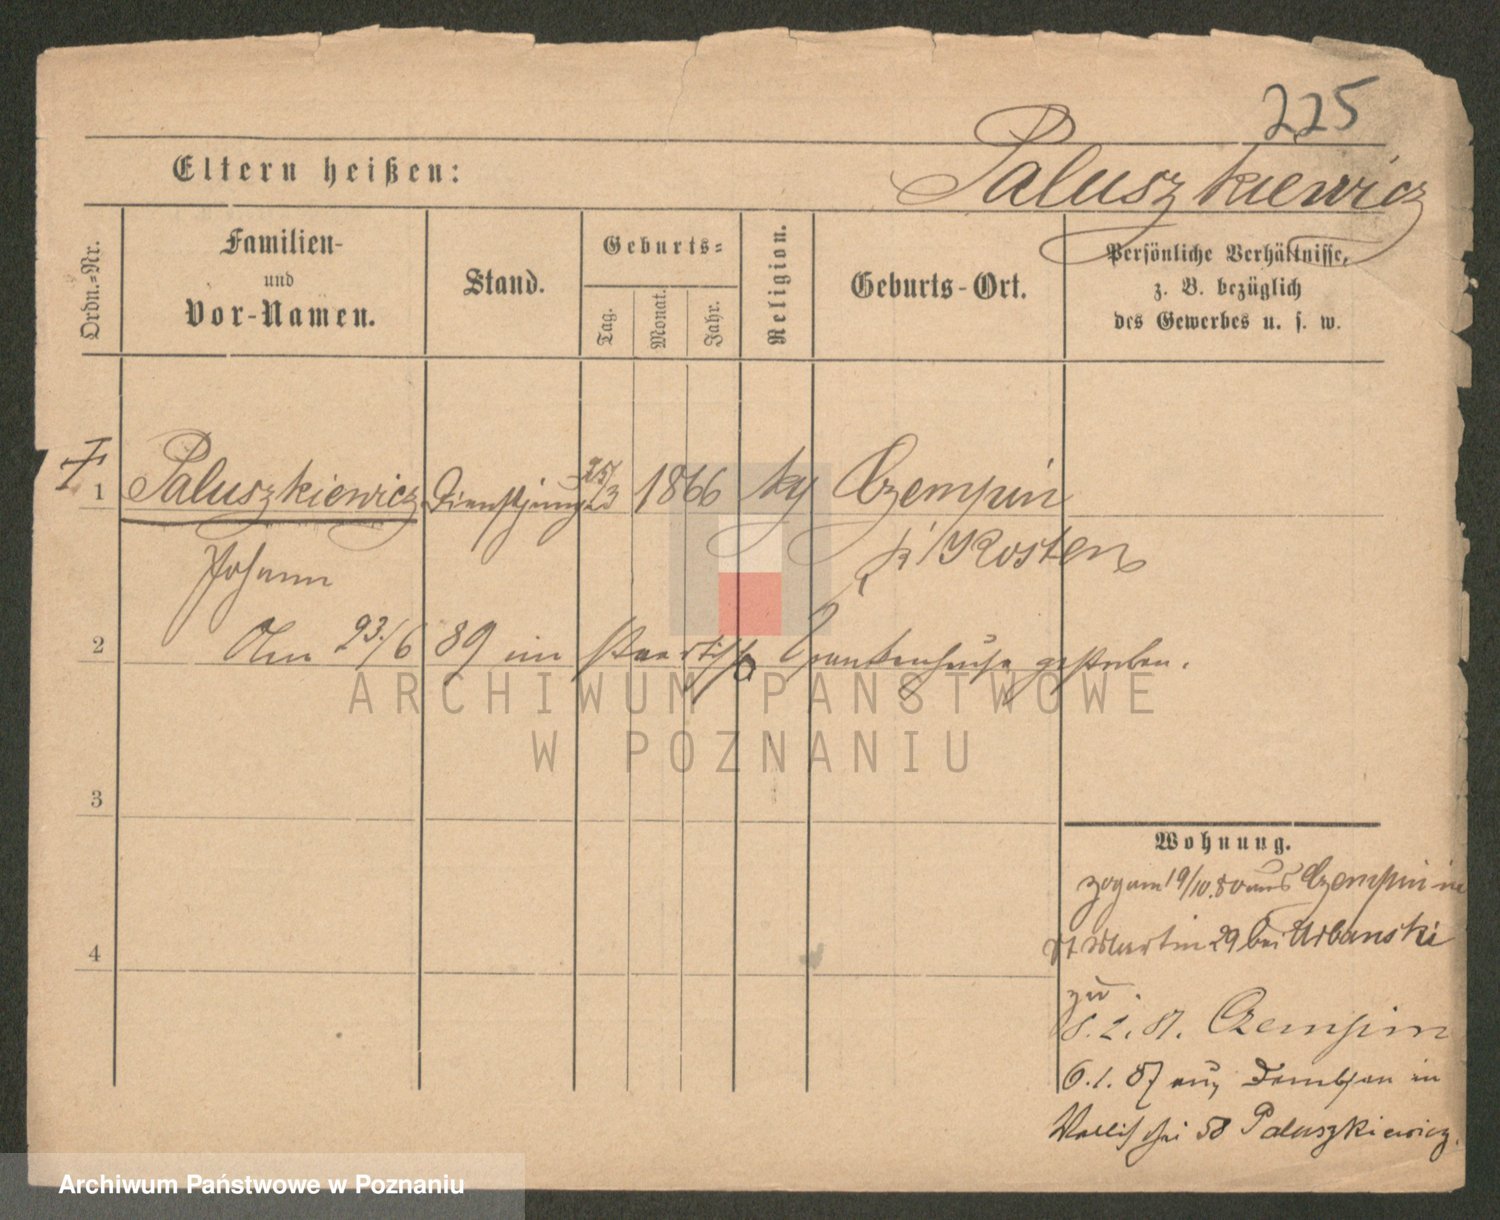 225
Eltern heißen:
Paluszkiewicz
Ordn.-Nr.
Familien-
und
Vor-Namen.
Stand.
Geburts-
Tag.
Monat.
Jahr.
Religion.
Geburts-Ort.
Persönliche Verhältnisse,
z. B. bezüglich
des Gewerbes u. s. w.
1 Paluszkiewicz Dienstjunge 25/3 1866 Czempin
Johann Kosten
2 Am 23/6 89 im Krankenhause gestorben.
ARCHIWUM PAŃSTWOWE
W POZNANIU
3
Wohnung.
zog am 19/10.80 aus Czempin in
St Martin 29 bei Urbanski
zu.
4
Czempin
6.1.87 aus in
Wallischei 58 Paluszkiewicz.
Archiwum Państwowe w Poznaniu